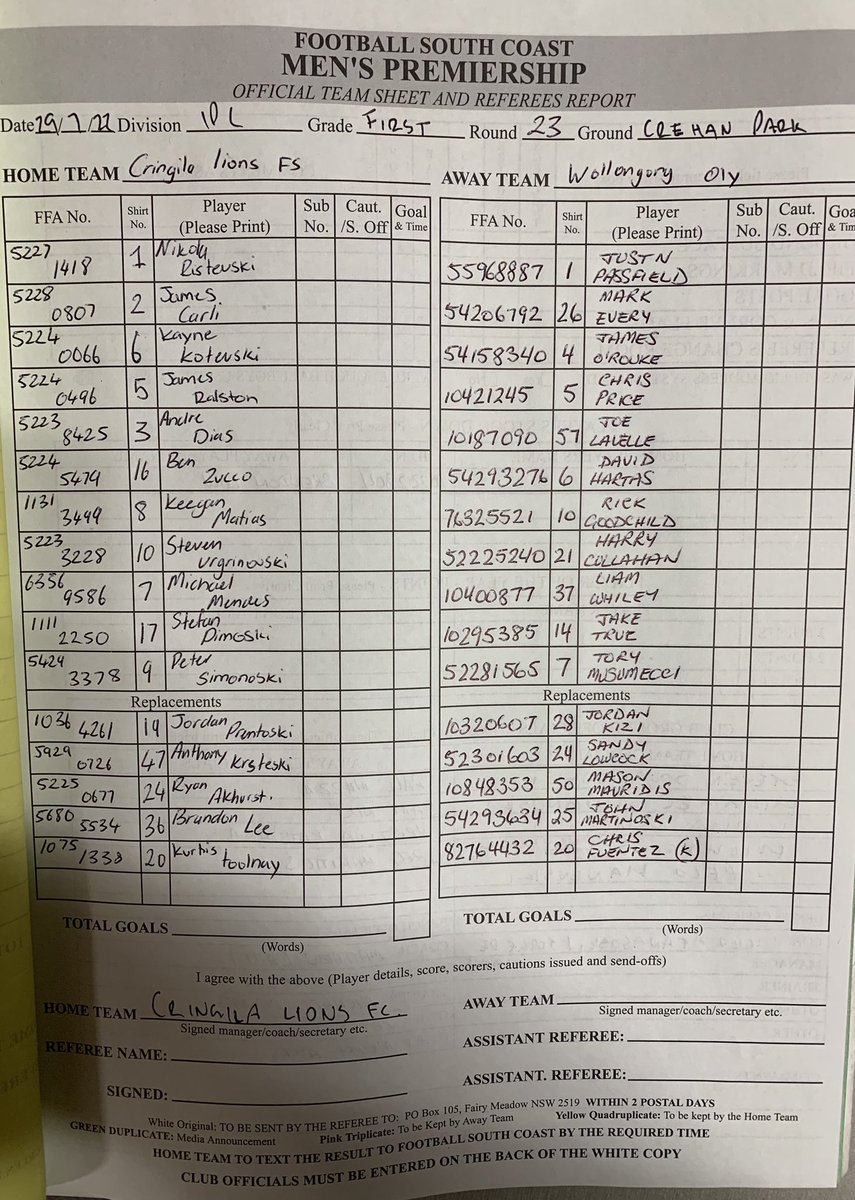 FOOTBALL SOUTH COAST
MEN'S PREMIERSHIP
OFFICIAL TEAM SHEET AND REFEREES REPORT
Date 29/7/22 Division IPL Grade FIRST Round 23 Ground CREHAN PARK
HOME TEAM Cringila lions FS
AWAY TEAM Wollongong Oly
FFA No. Shirt No. Player (Please Print) Sub No. Caut. /S. Off Goal & Time
5227 1418 1 Nikola Ristevski
5228 0807 2 James Carli
5224 0066 6 Kayne Kotevski
5224 0496 5 James Ralston
5223 8425 3 Andre Dias
5224 5479 16 Ben Zucco
1131 3499 8 Keegan Matias
5223 3228 10 Steven Urgrinovski
6356 9586 7 Michael Mendes
1111 2250 17 Stefan Dimoski
5424 3378 9 Peter Simonoski
Replacements
1036 4261 19 Jordan
5929 0726 47 Anthony Krsteski
5225 0677 24 Ryan Akhurst.
5680 5534 36 Brandon Lee
1075 1338 20 Kurtis toolnay
TOTAL GOALS
(Words)
FFA No. Shirt No. Player (Please Print) Sub No. Caut. /S. Off Goa & Time
55968887 1 JUSTN PASSFIELD
54206792 26 MARK EVERY
54158340 4 JAMES O'ROUKE
10421245 5 CHRIS PRICE
10187090 57 JOE LAVELLE
54293276 6 DAVID HARTAS
76325521 10 RICK GOODCHILD
52225240 21 HARRY CULLAHAN
10400877 37 LIAM WHILEY
10295385 14 JAKE TRUE
52281565 7 TORY MUSUMECCI
Replacements
10320607 28 JORDAN KIZI
52301603 24 SANDY LOWCOCK
10848353 50 MASON MAVRIDIS
54293634 25 JOHN MARTINOSKI
82764432 20 CHRIS FUENTEZ (K)
TOTAL GOALS
(Words)
I agree with the above (Player details, score, scorers, cautions issued and send-offs)
HOME TEAM CRINGILA LIONS FC.
Signed manager/coach/secretary etc.
AWAY TEAM
Signed manager/coach/secretary etc.
REFEREE NAME:
ASSISTANT REFEREE:
SIGNED:
ASSISTANT. REFEREE:
White Original: TO BE SENT BY THE REFEREE TO: PO Box 105, Fairy Meadow NSW 2519 WITHIN 2 POSTAL DAYS
GREEN DUPLICATE: Media Announcement Pink Triplicate: To be Kept by Away Team Yellow Quadruplicate: To be kept by the Home Team
HOME TEAM TO TEXT THE RESULT TO FOOTBALL SOUTH COAST BY THE REQUIRED TIME
CLUB OFFICIALS MUST BE ENTERED ON THE BACK OF THE WHITE COPY